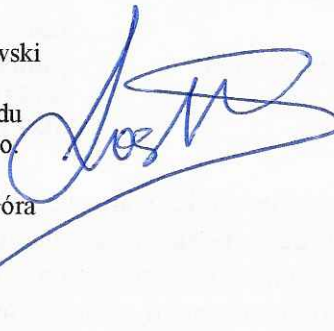 wski
du
o.
óra